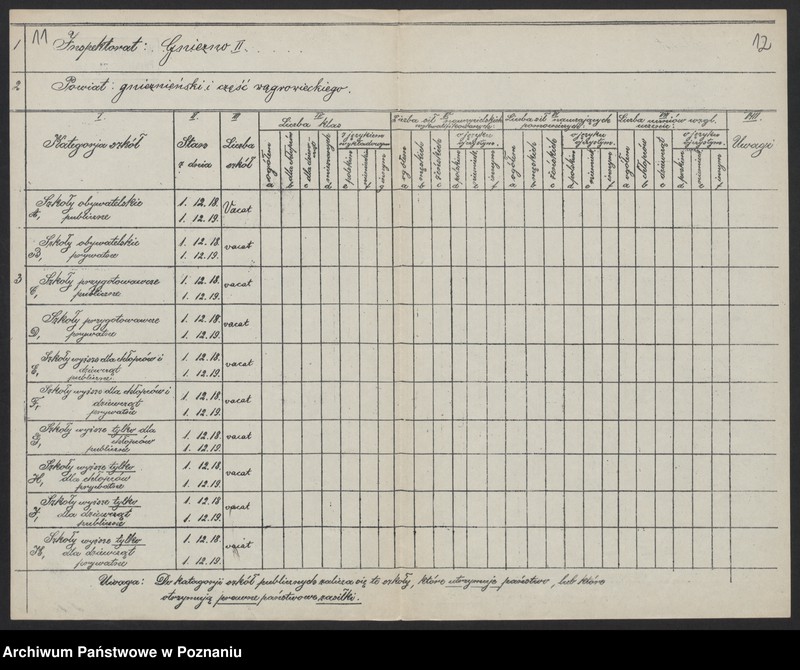 11 12
1 Inspektorat: Gniezno II.
2 Powiat: gnieźnieński i część wągrowieckiego.
I. II. III IV VIII.
Kategorja szkół
Stan z dnia
Liczba szkół
Liczba klas
ogółem
dla chłopców
mieszanych
z językiem wykładowym
polskim
niemieckim
innym
Liczba sił nauczycielskich wykwalifikowanych:
ogółem
męskich
żeńskich
o języku ojczystym
polskim
niemieck.
innym
Liczba sił nauczających pomocniczych:
ogółem
męskich
żeńskich
o języku ojczystym.
polskim
niemieck.
innym
Liczba uczniów wzgl. uczenic:
ogółem
chłopców
dziewcząt
o języku ojczystym.
polskim
niemieck.
innym
Uwagi
3
A, Szkoły obywatelskie publiczne 1. 12. 18. Vacat
1. 12. 19.
B, Szkoły obywatelskie prywatne 1. 12. 18. vacat
1. 12. 19.
C, Szkoły przygotowawcze publiczne 1. 12. 18. vacat
1. 12. 19.
D, Szkoły przygotowawcze prywatne 1. 12. 18. vacat
1. 12. 19.
E, Szkoły wyższe dla chłopców i dziewcząt publiczne 1. 12. 18. vacat
1. 12. 19.
F, Szkoły wyższe dla chłopców i dziewcząt prywatne 1. 12. 18. vacat
1. 12. 19.
G, Szkoły wyższe tylko dla chłopców publiczne 1. 12. 18. vacat
1. 12. 19.
H, Szkoły wyższe tylko dla chłopców prywatne 1. 12. 18. vacat
1. 12. 19.
Szkoły wyższe tylko dla dziewcząt publiczne 1. 12. 18 vacat
1. 12. 19.
Szkoły wyższe tylko dla dziewcząt prywatne 1. 12. 18. vacat
1. 12. 19.
Uwaga: Do kategorji szkół publicznych zalicza się te szkoły, które utrzymuje państwo, lub które
otrzymują prawne państwowe zasiłki.
Archiwum Państwowe w Poznaniu